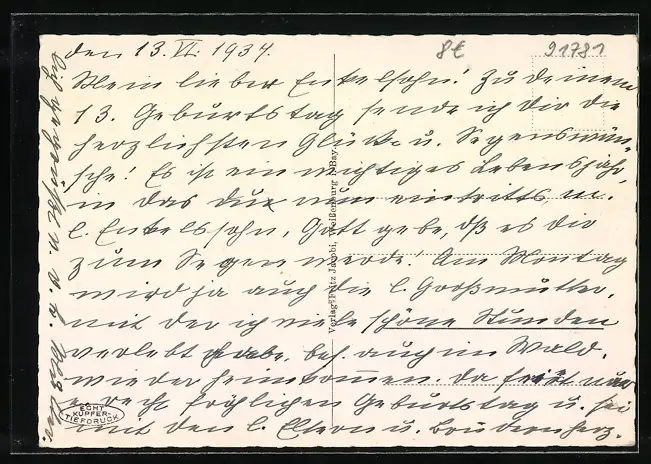 den 13. VI. 1934.
8€
91781
Mein lieber Enkelsohn! Zu deinem
13. Geburtstag sende ich dir die
herzlichsten Glück- u. Segenswün-
sche! Es ist ein wichtiges Lebensjahr,
in das du nun eintritts m.
l. Enkelsohn, Gott gebe, dß es dir
zum Segen werde! Am Montag
wird ja auch die l. Großmutter,
mit der ich viele schöne Stunden
verlebt habe, bes. auch im Wald,
wieder heimkommen. Da
recht fröhlichen Geburtstag u. sei
mit den l. Eltern u. Brüdern herz.
Verlag Fritz Jacobi, Weißenburg i. Bay.
ECHT
KUPFER-
TIEFDRUCK